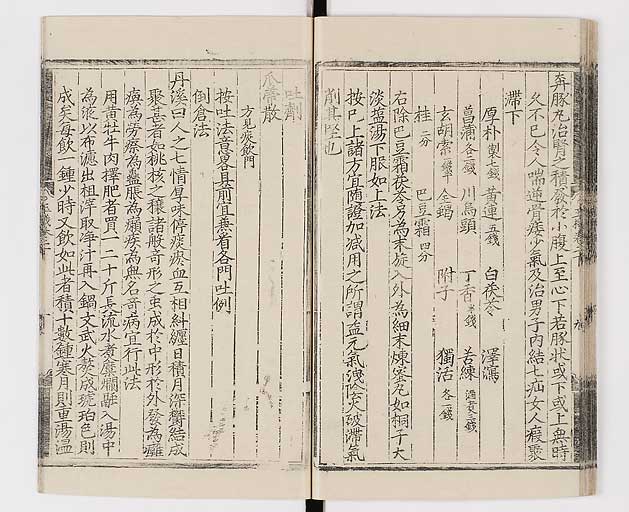 奔豚丸治腎之積發於小腹上至心下若豚狀或下或上無時
久不已令人喘逆骨痿少氣及治男子內結七疝女人瘕聚
滯下
厚朴 製七錢 黃連 五錢 白茯苓 澤瀉
菖蒲 各二錢 川烏頭 丁香 各錢 苦練 酒煮三錢
玄胡索 全蝎 附子 獨活 各一錢
桂 二分 巴豆霜 四分
右除巴豆霜茯苓另為末旋入外為細末煉蜜丸如桐子大
淡塩湯下服如上法
按已上諸方宜隨證加減用之所謂益元氣洩陰火破滯氣
削其堅也
吐劑
瓜蒂散
方見痰飲門
按吐法意畧具前宜兼看各門吐例
倒倉法
丹溪曰人之七情厚味停痰瘀血互相糾纏日積月深鬱結成
聚甚者如桃核之穰諸般奇形之虫成於中形於外發為癱
瘓為勞瘵為蠱脹為癩疾為無名奇病宜行此法
用黃牡牛肉擇肥者買一二十斤長流水煮糜爛融入湯中
為液以布濾出柤滓取淨汁再入鍋文武火熬成琥珀色則
成矣每飲一鍾少時又飲如此者積十數鍾寒月則重湯溫